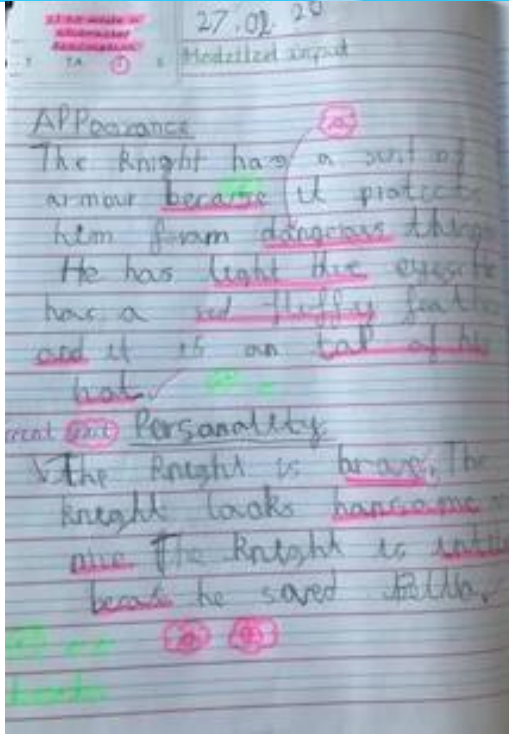 27.02.20
Modelled input
TA
Appearance
The Knight has a suit of
armour because it protects
him foram dangerous things
He has light blue eyes
has a red fluffy
and it is on top of his
hat.
Personality
The Knight is brave. The
knight looks hansome
The Knight is
becaus he saved